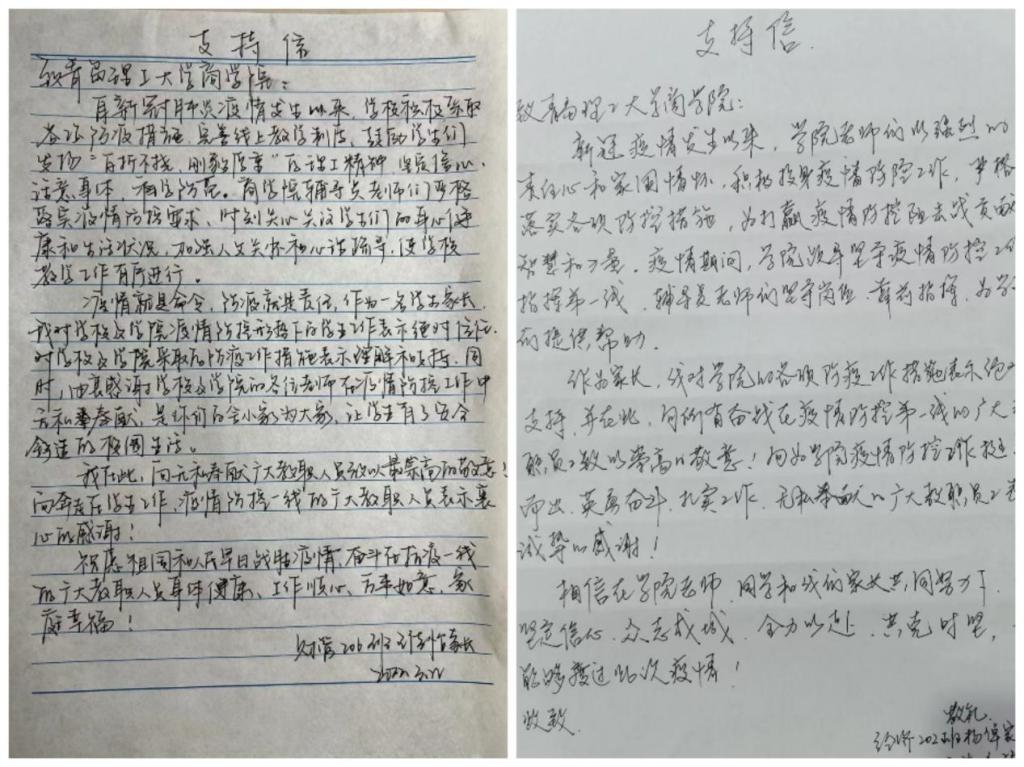 支持信
致青岛理工大学商学院：
自新冠肺炎疫情发生以来，学校积极采取
各项防疫措施，完善线上教学制度，鼓励学生们
发扬“百折不挠，刚毅厚重”的理工精神，坚定信心，
注意身体，科学防范。商学院辅导员老师们严格
落实疫情防控要求，时刻关心关注学生们的身心健
康和生活状况，加强人文关怀和心理疏导，使学校
教学工作有序进行。
疫情就是命令，防疫就是责任，作为一名学生家长，
我对学校及学院疫情防控形势下的学生工作表示绝对信任，
对学校及学院采取的防疫工作措施表示理解和支持。同
时，由衷感谢学校及学院的各位老师在疫情防控工作中
无私奉献，是你们的舍小家为大家，让学生有了安全
舒适的校园生活。
我在此，向无私奉献广大教职人员致以最崇高的敬意！
向奔走在学生工作、疫情防控一线的广大教职人员表示衷
心的感谢！
祝愿祖国和人民早日战胜疫情，奋斗在抗疫一线
的广大教职人员身体健康、工作顺心、万事如意、家
庭幸福！
财管206班 家长
2022.3.22
支持信
致青岛理工大学商学院：
新冠疫情发生以来，学院老师们以强烈的
责任心和家国情怀，积极投身疫情防控工作，严格
落实各项防控措施，为打赢疫情防控阻击战贡献
智慧和力量。疫情期间，学院领导坚守疫情防控工作
指挥第一线，辅导员老师们坚守岗位，靠前指挥，为学
的提供帮助。
作为家长，我对学院的各项防疫工作措施表示绝对
支持，并在此，向所有奋战在疫情防控第一线的广大
职员工致以崇高的敬意！向为学院疫情防控工作挺
而出、英勇奋斗、扎实工作、无私奉献的广大教职员工
诚挚的感谢！
相信在学院老师、同学和我们家长共同努力下，
坚定信心、众志成城、全力以赴、共克时坚，
能够度过此次疫情！
此致
敬礼
经济202班杨 家